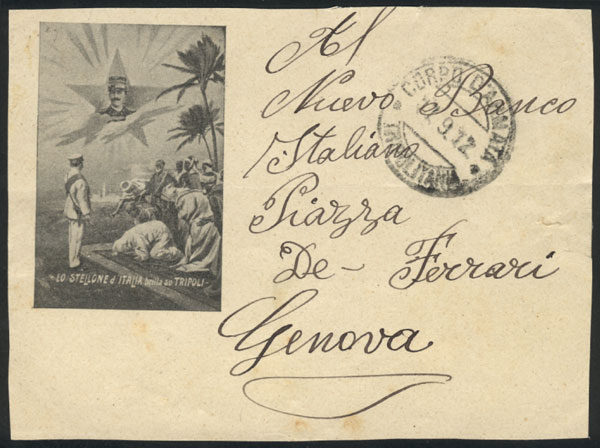 Al
Nuevo Banco
Italiano
Piazza
De - Ferrari
Genova
CORPO D'ARMATA
9.12
LO STELLONE d'ITALIA brilla su TRIPOLI